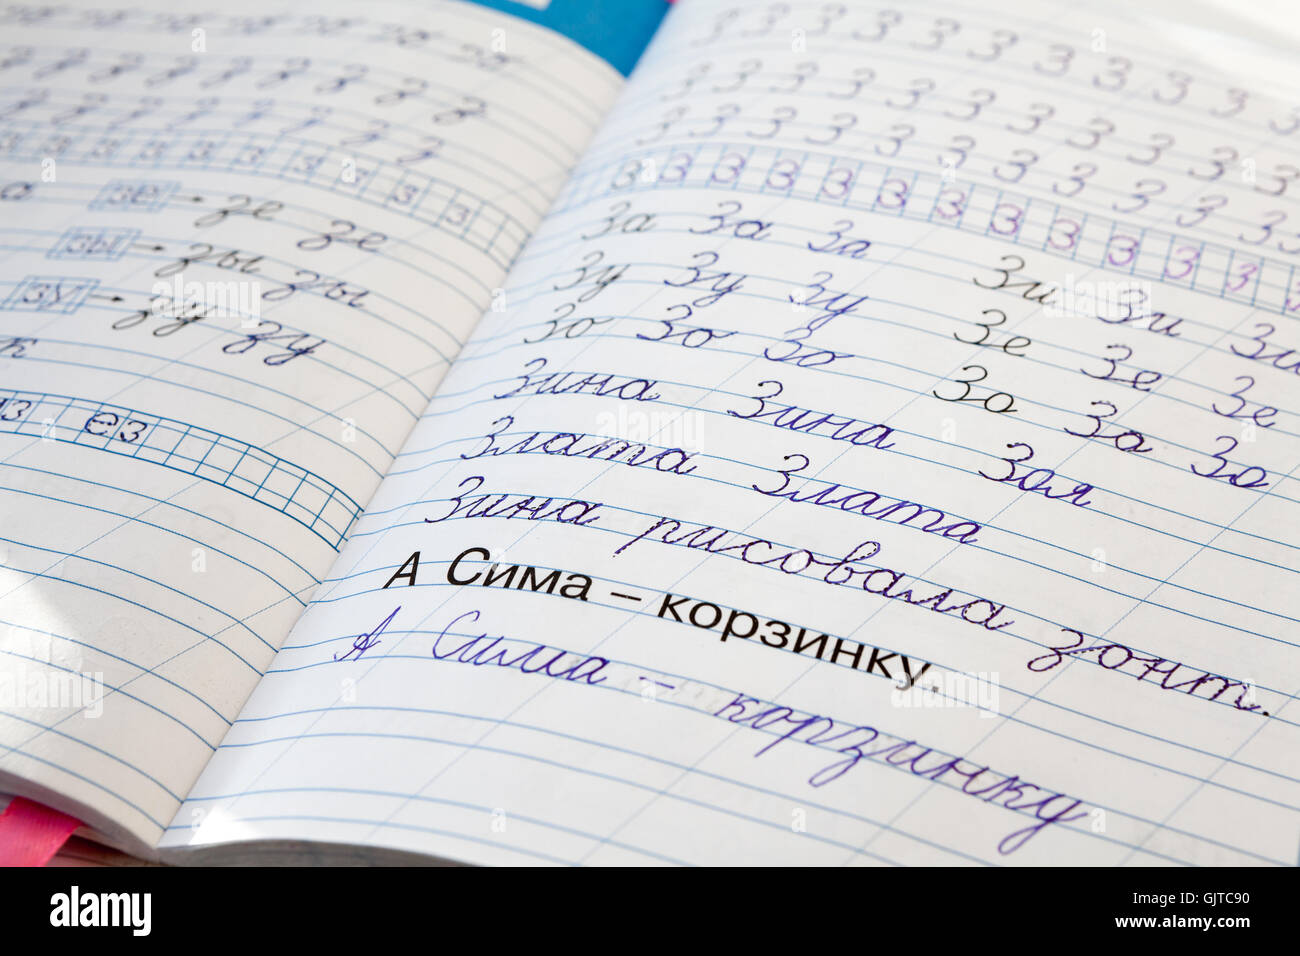 з з з з з з з з
з з з з з з з з
з з з з з з з з з
зе зе зе
зы зы зы
зу зу зу
к
ез
З З З З З З З З З З З
З З З З З З З З З З З
З З З З З З З З З З З
З З З З З З З З З З З З
За За За Зи Зи Зи
Зу Зу Зу Зе Зе Зе
Зо Зо Зо Зо Зо Зо
Зина Зина Зоя
Злата Злата
Зина рисовала зонт.
А Сима – корзинку.
А Сима – корзинку
alamy
Image ID: GJTC90
www.alamy.com